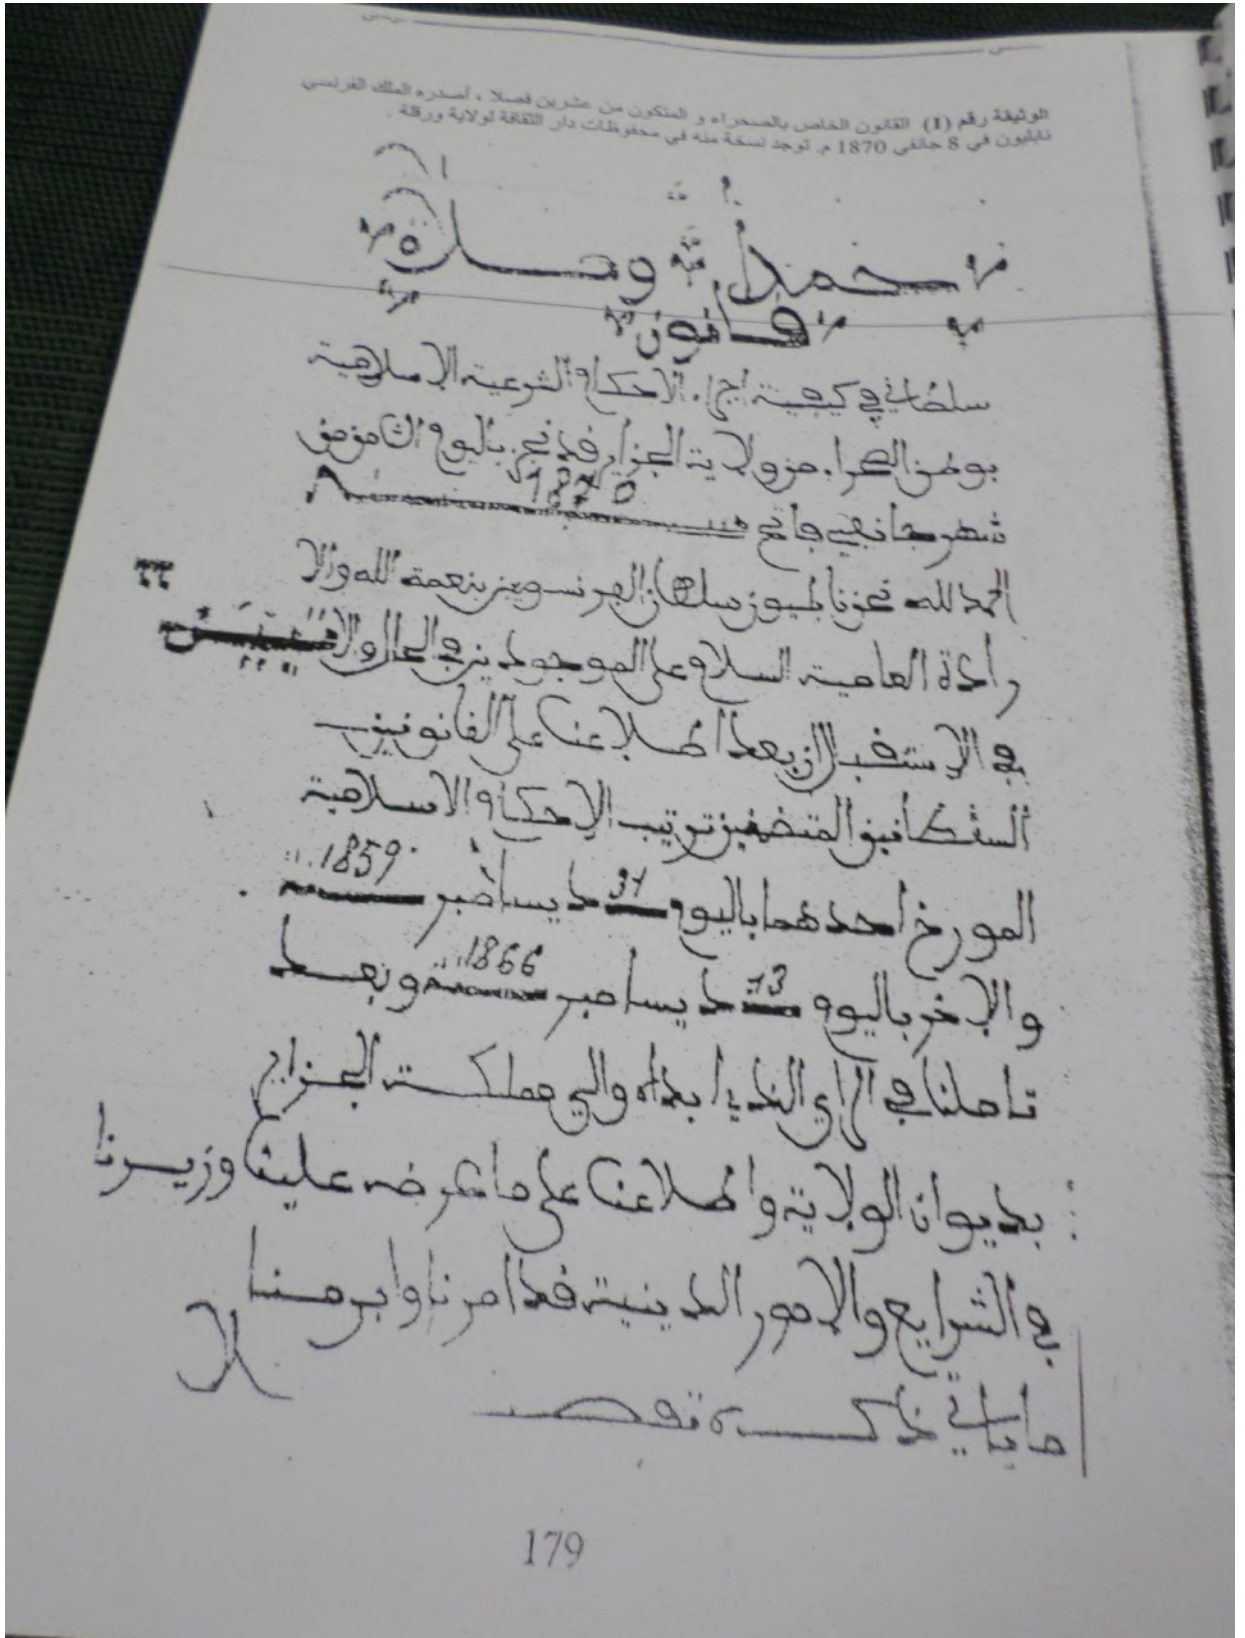 الوثيقة رقم (1) القانون الخاص بالصحراء و المتكون من عشرين فصلا ، أصدره الملك الفرنسي
نابليون في 8 جانفي 1870 م. توجد نسخة منه في محفوظات دار الثقافة لولاية ورقلة .
قانون
سلطاني في كيفية اجراء الاحكام الشرعية الاسلامية
بوطن الصحراء من ولاية الجزاير باليوم الثامن من
شهر جانفي فاتح سنة 1870
الحمد لله نحن نابليون سلطان الفرنسويين بنعمة الله والا
رادة العامية السلام على الموجودين في الحال والاتيين
في الاستقبال ان بعد اطلاعنا على القانونين
السلطانيين المتضمنين ترتيب الاحكام الاسلامية
المورخ احدهما باليوم 31 ديسامبر سنة 1859
والاخر باليوم 13 ديسامبر سنة 1866 وبعد
تاملنا في الراي الذي ابداه والي مملكة الجزاير
بديوان الولاية واطلاعنا على ما عرضه علينا وزيرنا
في الشرايع والامور الدينية قد امرنا وابرمنا
ما ياتي ذكره
179